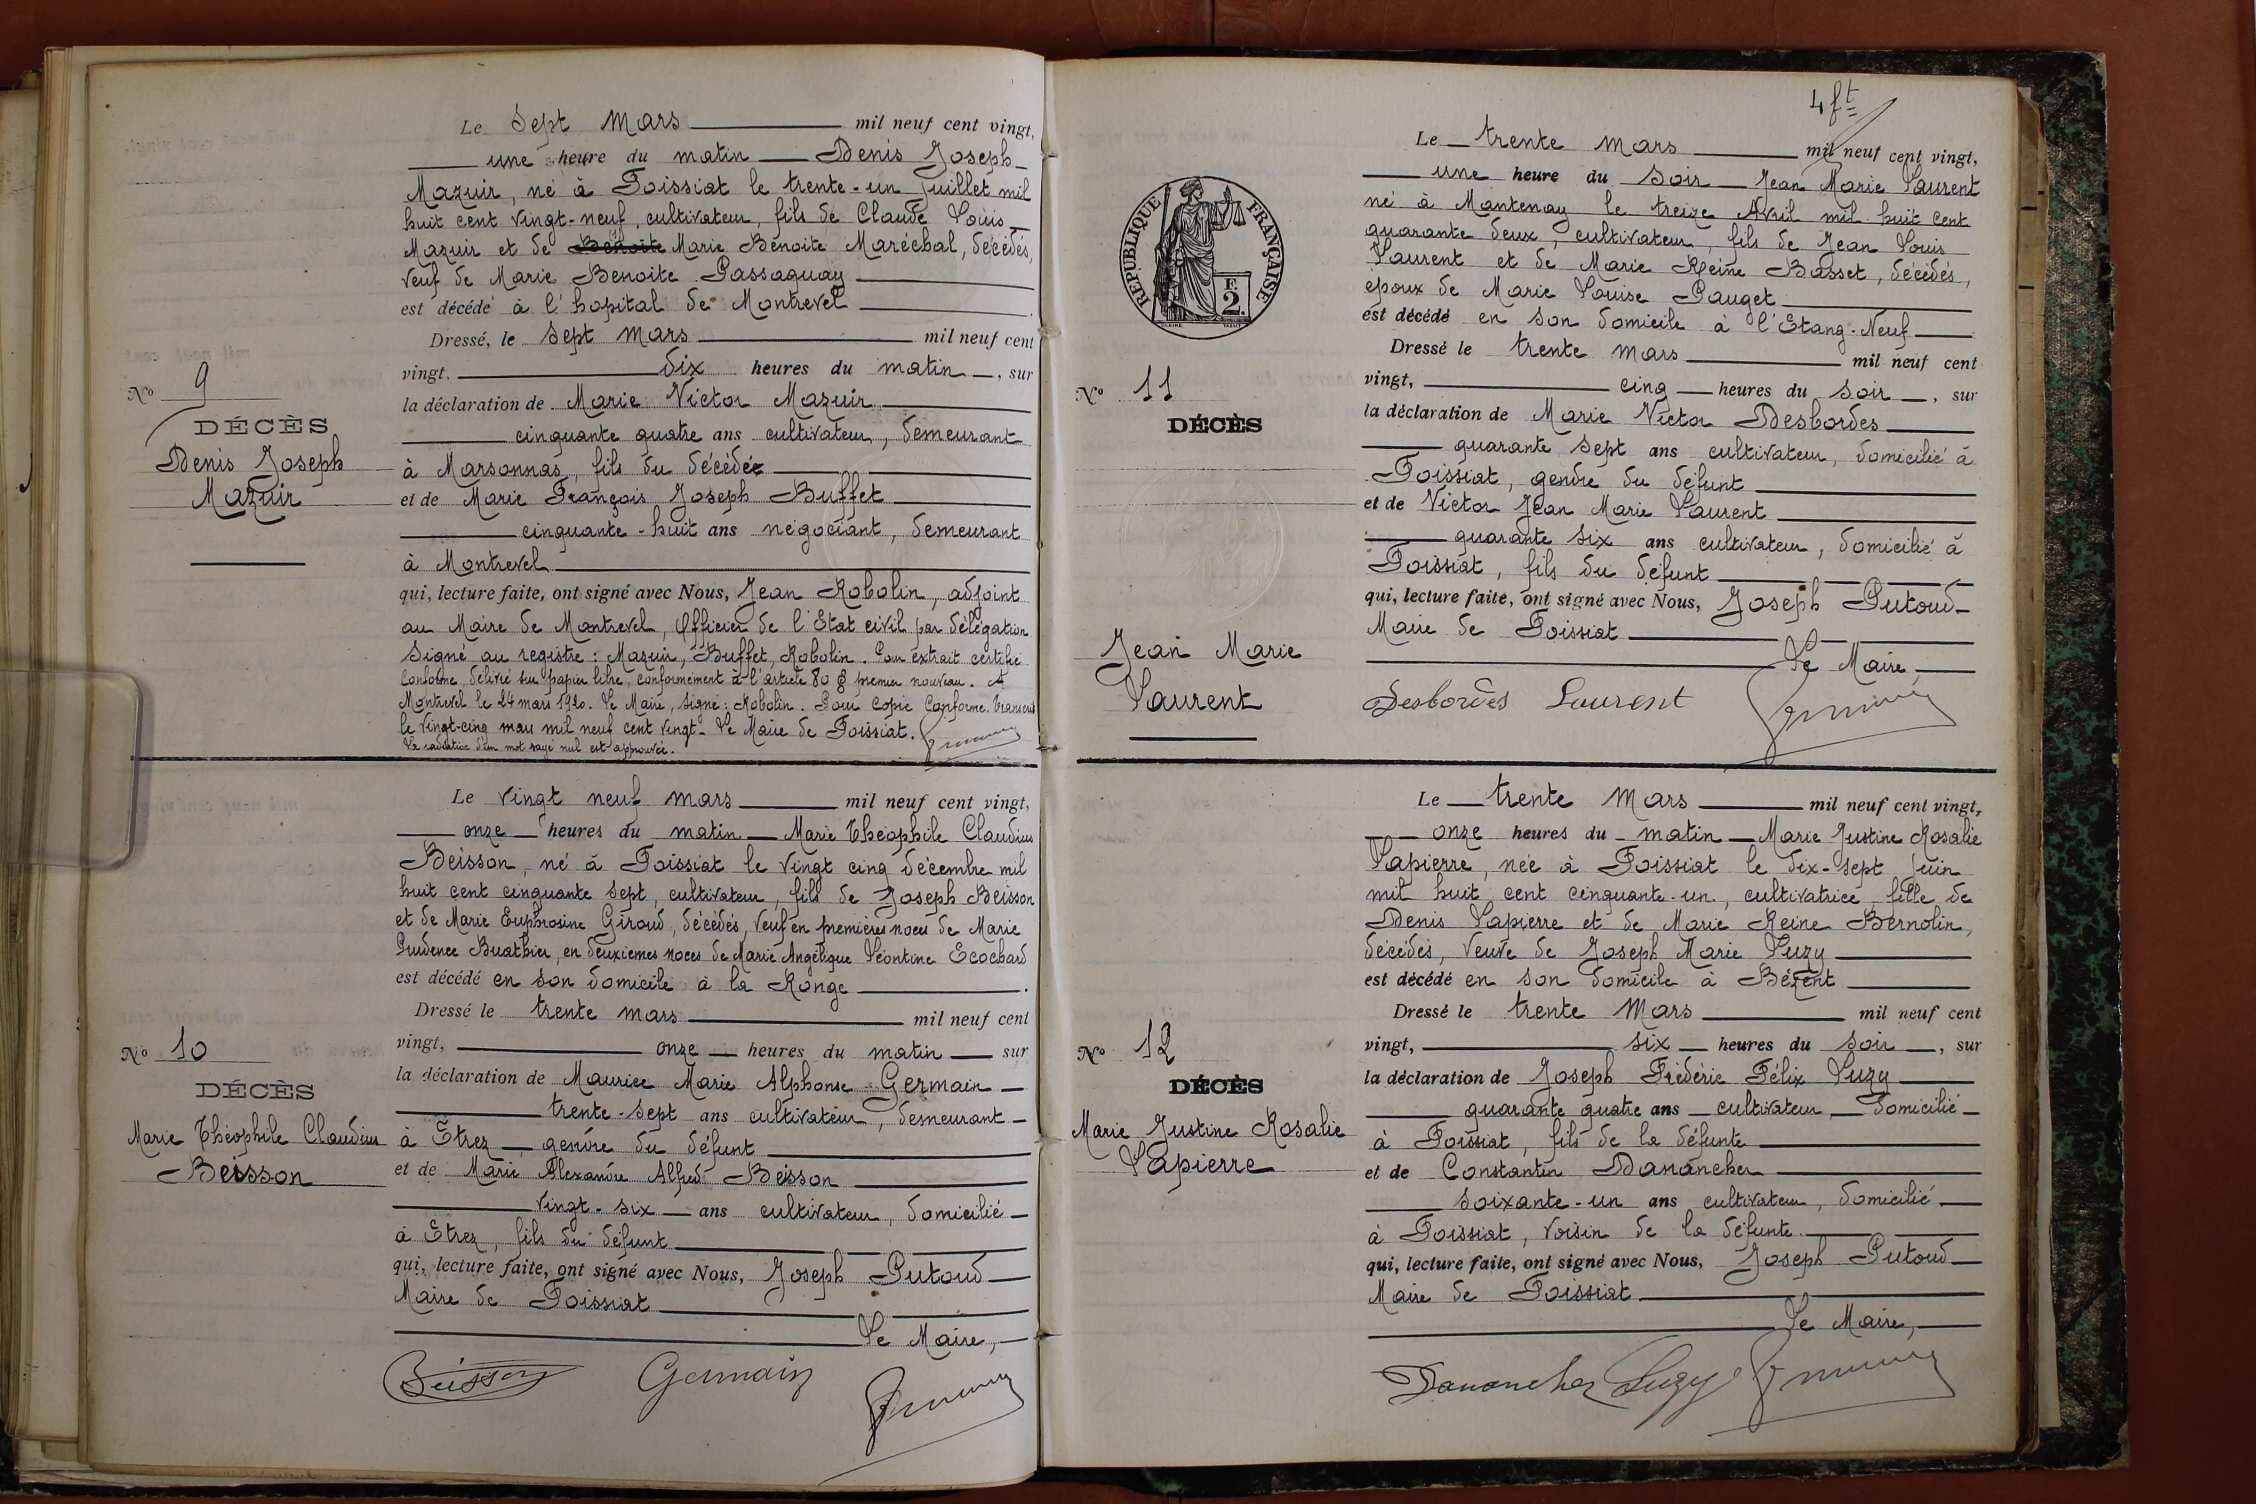 Le Sept Mars mil neuf cent vingt,
une heure du matin Denis Joseph
Mazuir, né à Foissiat le trente-un Juillet mil
huit cent vingt-neuf, cultivateur, fils de Claude Louis
Mazuir et de Benoite Marie Benoite Maréchal, décédés,
veuf de Marie Benoite Passaquay
est décédé à l'hopital de Montrevel
Dressé, le sept mars mil neuf cent
vingt. dix heures du matin, sur
la déclaration de Marie Victor Mazuir
cinquante quatre ans cultivateur, demeurant
à Marsonnas, fils du décédé
et de Marie François Joseph Buffet
cinquante-huit ans négociant, demeurant
à Montrevel
qui, lecture faite, ont signé avec Nous, Jean Robolin, adjoint
au Maire de Montrevel, Officier de l'Etat civil par délégation
Signé au registre : Mazuir, Buffet, Robolin. Pour extrait certifié
Conforme, délivré sur papier libre, conformément à l'article 80 § premier nouveau. A
Montrevel le 24 mars 1920. Le Maire, signé : Robolin. Pour Copie Conforme. Transcrit
le vingt-cinq mars mil neuf cent vingt. Le Maire de Foissiat.
La radiation d'un mot rayé nul est approuvée.
No 9
DÉCÈS
Denis Joseph
Mazuir
Le vingt neuf mars mil neuf cent vingt,
onze heures du matin Marie Théophile Claudius
Beisson, né à Foissiat le vingt cinq décembre mil
huit cent cinquante sept, cultivateur, fils de Joseph Beisson
et de Marie Euphrosine Giroud, décédés, veuf en premières noces de Marie
Prudence Buathier, en deuxièmes noces de Marie Angélique Léontine Ecochard
est décédé en son domicile à la Ronge
Dressé le trente mars mil neuf cent
vingt, onze heures du matin sur
la déclaration de Maurice Marie Alphonse Germain
trente-sept ans cultivateur, demeurant
à Etrez, gendre du défunt
et de Marie Alexandre Alfred Beisson
vingt-six ans cultivateur, domicilié
à Etrez, fils du défunt
qui, lecture faite, ont signé avec Nous, Joseph Putoud
Maire de Foissiat
Le Maire,
Beisson Germain
No 10
DÉCÈS
Marie Théophile Claudius
Beisson
4 ft
Le trente mars mil neuf cent vingt,
une heure du Soir Jean Marie Laurent
né à Mantenay le treize Avril mil huit cent
quarante deux, cultivateur, fils de Jean Louis
Laurent et de Marie Reine Basset, décédés,
époux de Marie Louise Pauget
est décédé en son domicile à l'Etang-Neuf
Dressé le trente mars mil neuf cent
vingt, cinq heures du soir, sur
la déclaration de Marie Victor Desbordes
quarante sept ans cultivateur, domicilié à
Foissiat, gendre du défunt
et de Victor Jean Marie Laurent
quarante six ans cultivateur, domicilié à
Foissiat, fils du défunt
qui, lecture faite, ont signé avec Nous, Joseph Putoud
Maire de Foissiat
Le Maire,
Desbordes Laurent
RÉPUBLIQUE FRANÇAISE
F.
2.
No 11
DÉCÈS
Jean Marie
Laurent
Le trente Mars mil neuf cent vingt,
onze heures du matin Marie Justine Rosalie
Lapierre, née à Foissiat le dix-sept Juin
mil huit cent cinquante-un, cultivatrice, fille de
Denis Lapierre et de Marie Reine Bernolin,
décédés, Veuve de Joseph Marie Luzy
est décédé en son domicile à Bézent
Dressé le trente Mars mil neuf cent
vingt, six heures du soir, sur
la déclaration de Joseph Frédéric Félix Luzy
quarante quatre ans cultivateur domicilié
à Foissiat, fils de la défunte
et de Constantin Danancher
soixante-un ans cultivateur, domicilié
à Foissiat, voisin de la défunte
qui, lecture faite, ont signé avec Nous, Joseph Putoud
Maire de Foissiat
Le Maire,
Danancher Luzy
No 12
DÉCÈS
Marie Justine Rosalie
Lapierre